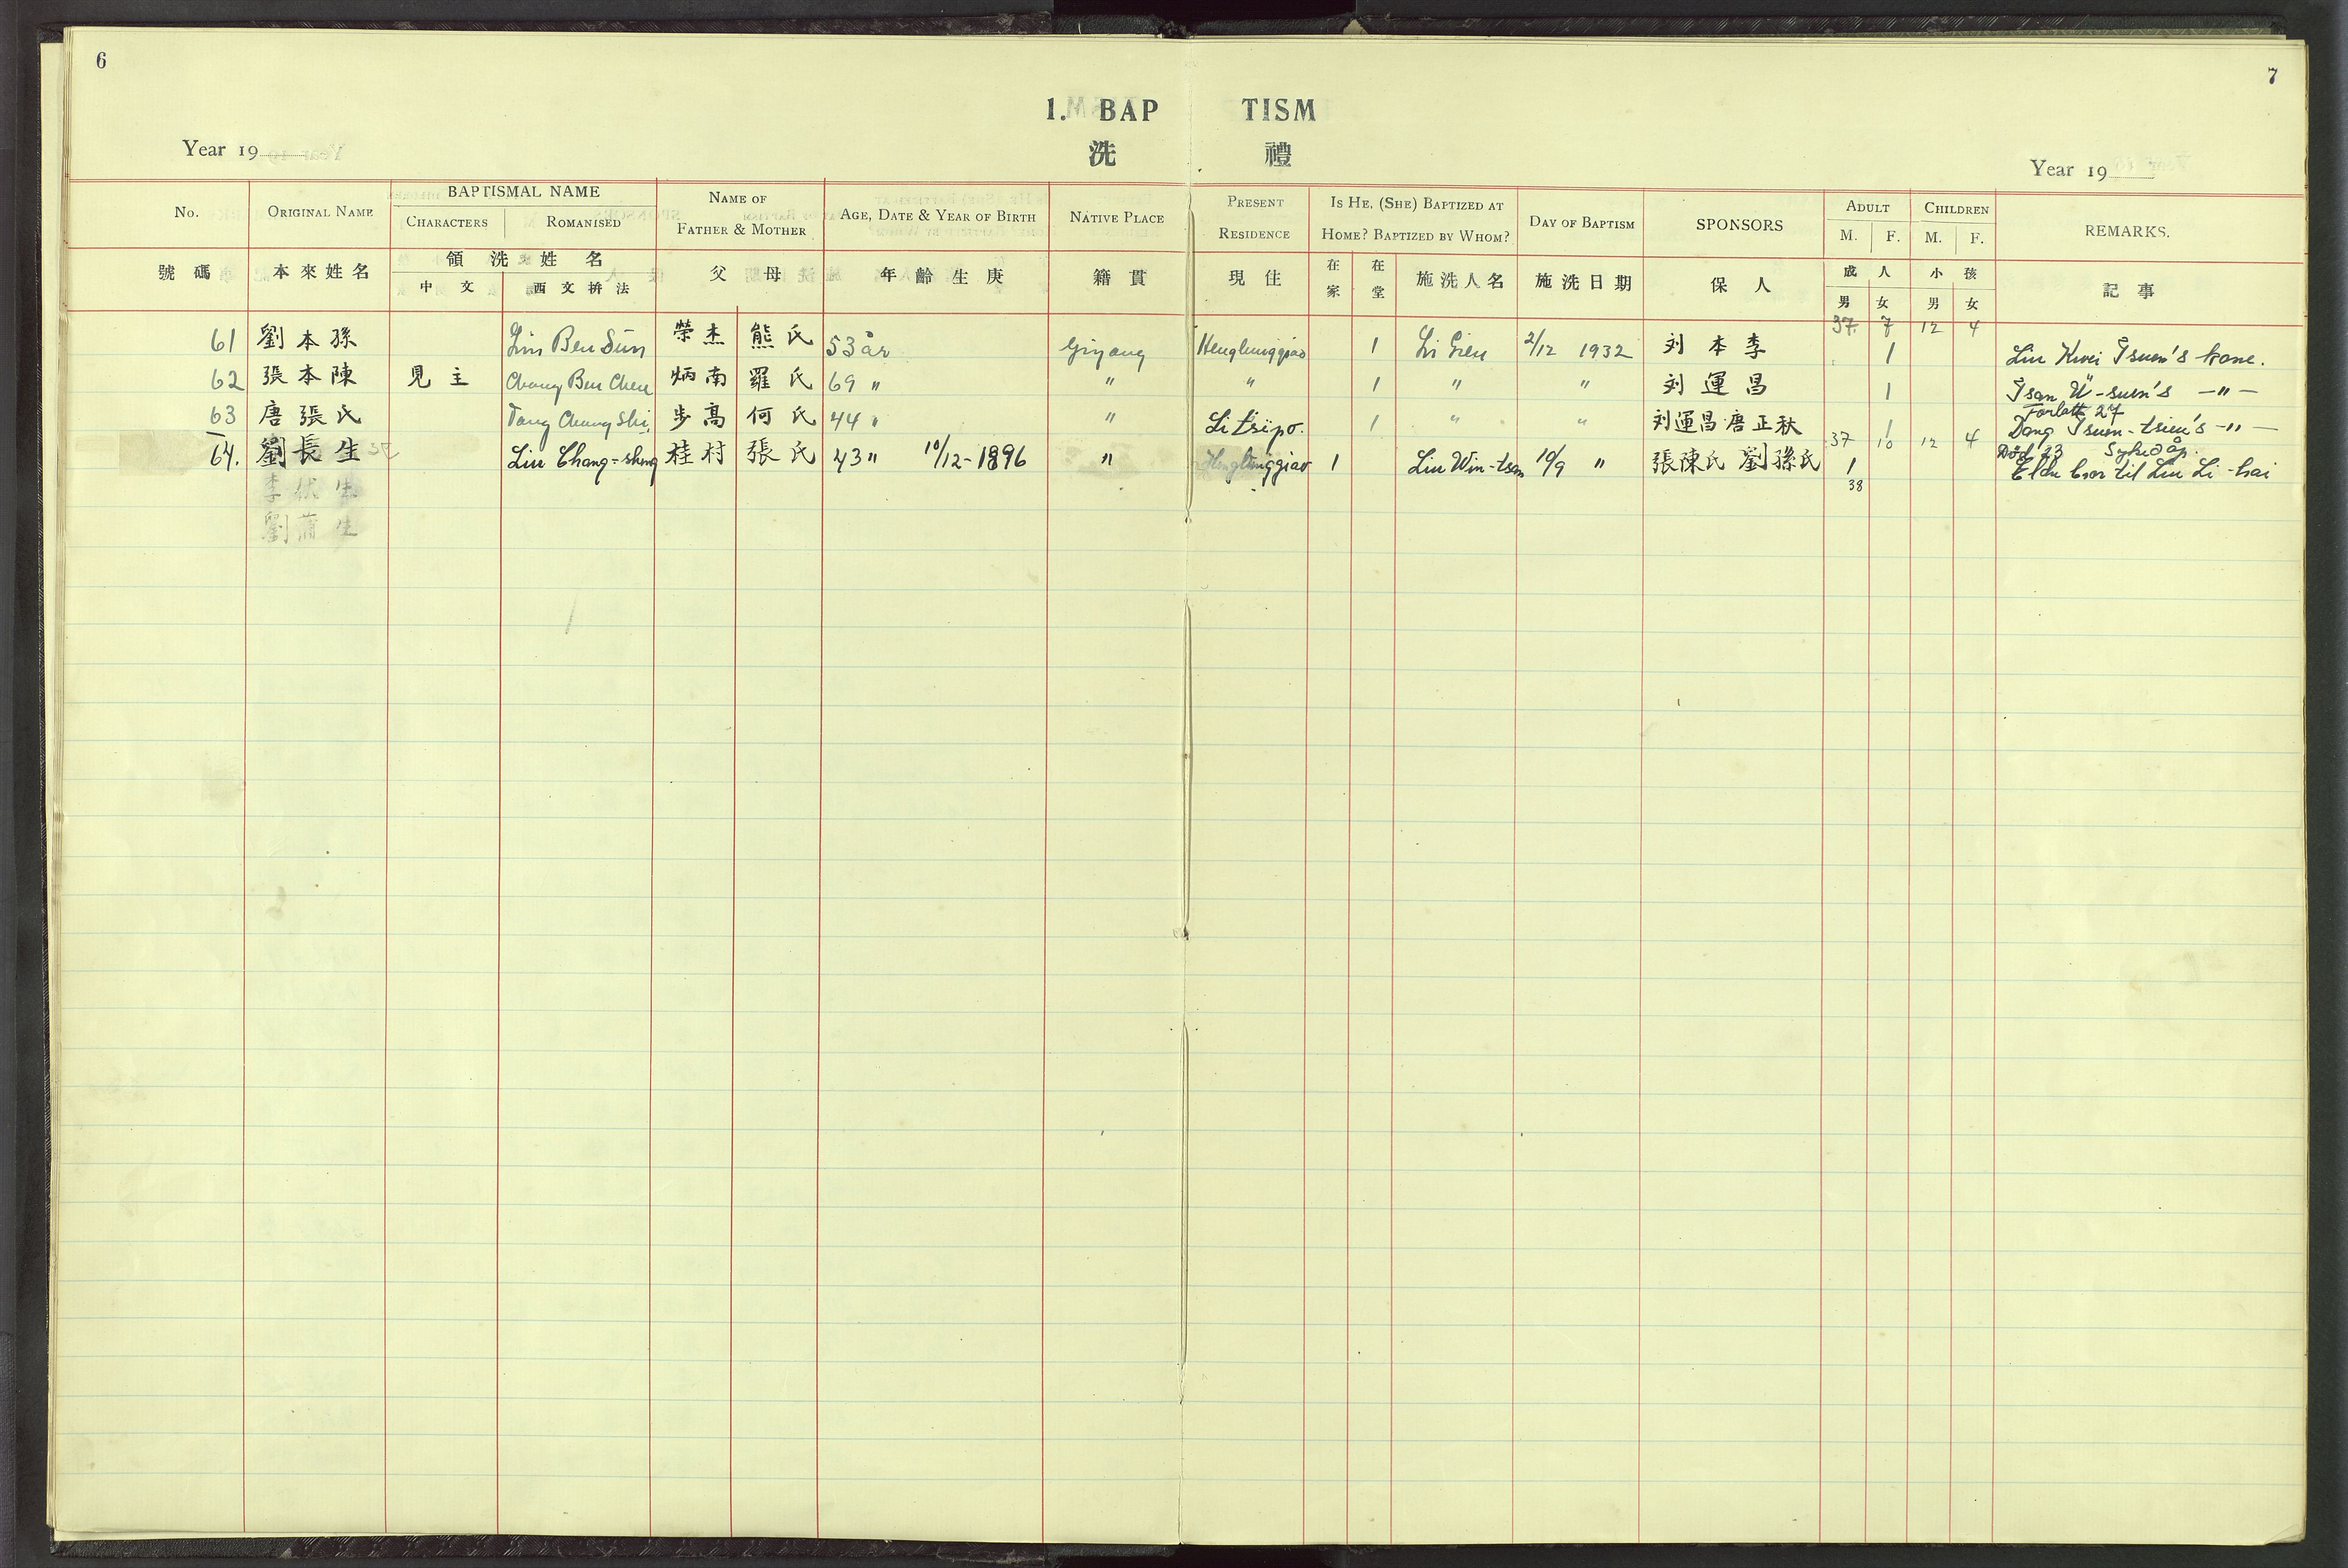 6
7
1. BAPTISM
洗 禮
Year 19
Year 19
No.
ORIGINAL NAME
BAPTISMAL NAME
CHARACTERS
ROMANISED
NAME OF
FATHER & MOTHER
AGE, DATE & YEAR OF BIRTH
NATIVE PLACE
PRESENT
RESIDENCE
IS HE, (SHE) BAPTIZED AT
HOME? BAPTIZED BY WHOM?
DAY OF BAPTISM
SPONSORS
ADULT
M. F.
CHILDREN
M. F.
REMARKS.
號 碼
本來姓名
領洗姓名
中 文
西文拚法
父 母
年齡生庚
籍貫
現住
在家
在堂
施洗人名
施洗日期
保人
成人
男 女
小孩
男 女
記事
37. 7 12 4
61 劉本孫 Liu Ben Sün 榮杰 熊氏 53 år Yiyang Henglunggiao 1 Li Gien 2/12 1932 刘本李 1 Liu Kwei Tsuen's kone.
62 張本陳 見主 Chang Ben Chen 炳南 羅氏 69 " " " 1 " " 刘運昌 1 Tsan U-suen's -"-
Forlatt 27
63 唐張氏 Tang Chang Shi, 步高 何氏 44 " " Li tsipo. 1 " " 刘運昌 唐正秋 1 Dang Tsuen-tsien's -"-
37 10 12 4
Död 23
64. 劉長生 Liu Chang-sheng 桂村 張氏 43 " 10/12-1896 " Henglunggiao 1 Liu Win-tsan 10/9 " 張陳氏 劉孫氏 1 Eldre bror til Liu Li-tsai
38
李 生
劉蒲生